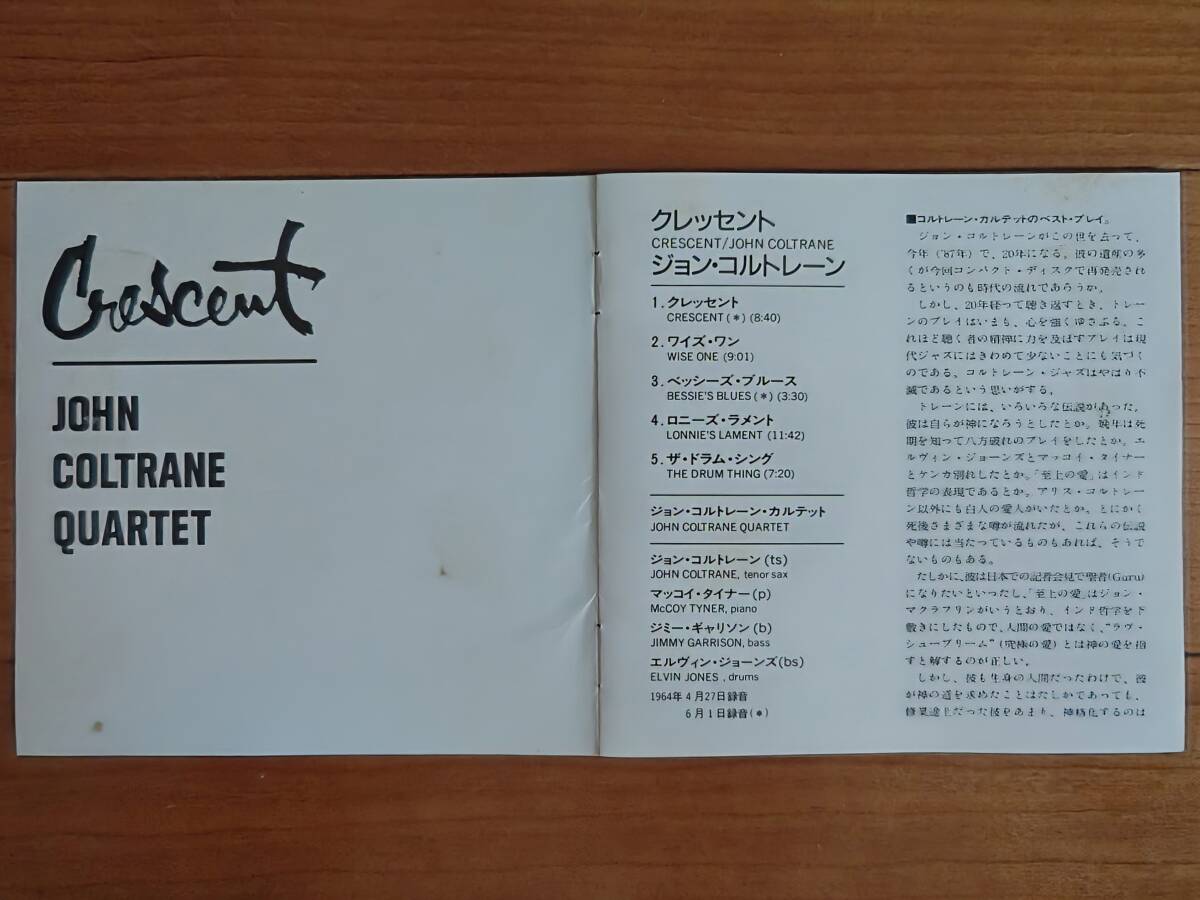 Crescent
JOHN
COLTRANE
QUARTET
クレッセント
CRESCENT/JOHN COLTRANE
ジョン・コルトレーン
1. クレッセント
CRESCENT (*) (8:40)
2. ワイズ・ワン
WISE ONE (9:01)
3. ベッシーズ・ブルース
BESSIE'S BLUES (*) (3:30)
4. ロニーズ・ラメント
LONNIE'S LAMENT (11:42)
5. ザ・ドラム・シング
THE DRUM THING (7:20)
ジョン・コルトレーン・カルテット
JOHN COLTRANE QUARTET
ジョン・コルトレーン (ts)
JOHN COLTRANE, tenor sax
マッコイ・タイナー (p)
McCOY TYNER, piano
ジミー・ギャリソン (b)
JIMMY GARRISON, bass
エルヴィン・ジョーンズ(bs)
ELVIN JONES , drums
1964年 4月27日録音
6月1日録音(*)
■コルトレーン・カルテットのベスト・プレイ。
ジョン・コルトレーンがこの世を去って、
今年('87年)で、20年になる。彼の遺産の多
くが今回コンパクト・ディスクで再発売され
るというのも時代の流れであろうか。
しかし、20年経って聴き返すとき、トレー
ンのプレイはいまも、心を強くゆさぶる。こ
れほど聴く者の精神に力を及ぼすプレイは現
代ジャズにはきわめて少ないことにも気づく
のである。コルトレーン・ジャズはやはり不
滅であるという思いがする。
トレーンには、いろいろな伝説があった。
彼は自らが神になろうとしたとか。晩年は死
期を知って八方破れのプレイをしたとか。エ
ルヴィン・ジョーンズとマッコイ・タイナー
とケンカ別れしたとか。「至上の愛」はインド
哲学の表現であるとか。アリス・コルトレー
ン以外にも白人の愛人がいたとか。とにかく
死後さまざまな噂が流れたが、これらの伝説
や噂には当たっているものもあれば、そうで
ないものもある。
たしかに、彼は日本での記者会見で聖者(Guru)
になりたいといったし、「至上の愛」はジョン・
マクラフリンがいうとおり、インド哲学を下
敷きにしたもので、人間の愛ではなく、“ラヴ・
シュープリーム”(究極の愛)とは神の愛を指
すと解するのが正しい。
しかし、彼も生身の人間だったわけで、彼
が神の道を求めたことはたしかであっても、
修業途上だった彼をあまり、神格化するのは